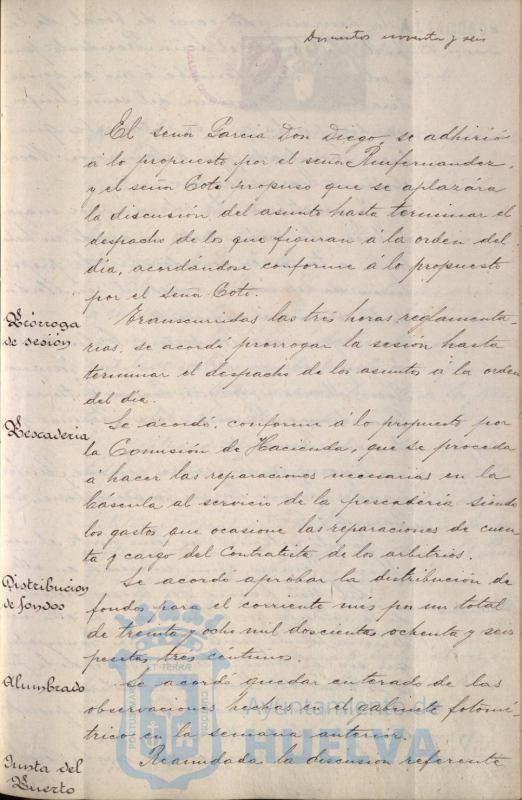 Doscientos noventa y seis
El señor Garcia Don Diego, se adhirió
á lo propuesto por el señor
y el señor Coto propuso que se aplazára
la discusión del asunto hasta terminar el
despacho de los que figuran á la orden del
día, acordándose conforme á lo propuesto
por el señor Coto.
Prórroga
de sesión
Transcurridas las tres horas reglamenta-
rias, se acordó prorrogar la sesión hasta
terminar el despacho de los asuntos á la orden
del día.
Pescaderia
Se acordó, conforme á lo propuesto por
la Comisión de Hacienda, que se proceda
á hacer las reparaciones necesarias en la
báscula al servicio de la pescaderia siendo
los gastos que ocasione las reparaciones de cuen-
ta y cargo del Contratista de los arbitrios.
Distribucion
de fondos
Se acordó aprobar la distribución de
fondos para el corriente mes por un total
de treinta y ocho mil doscientas ochenta y seis
pesetas tres céntimos.
Alumbrado
Se acordó quedar enterado de las
observaciones hechas en el gabinete fotomé-
trico en la semana anterior.
Junta del
Puerto
Reanudada la discusión referente
Ayuntamiento de
HUELVA